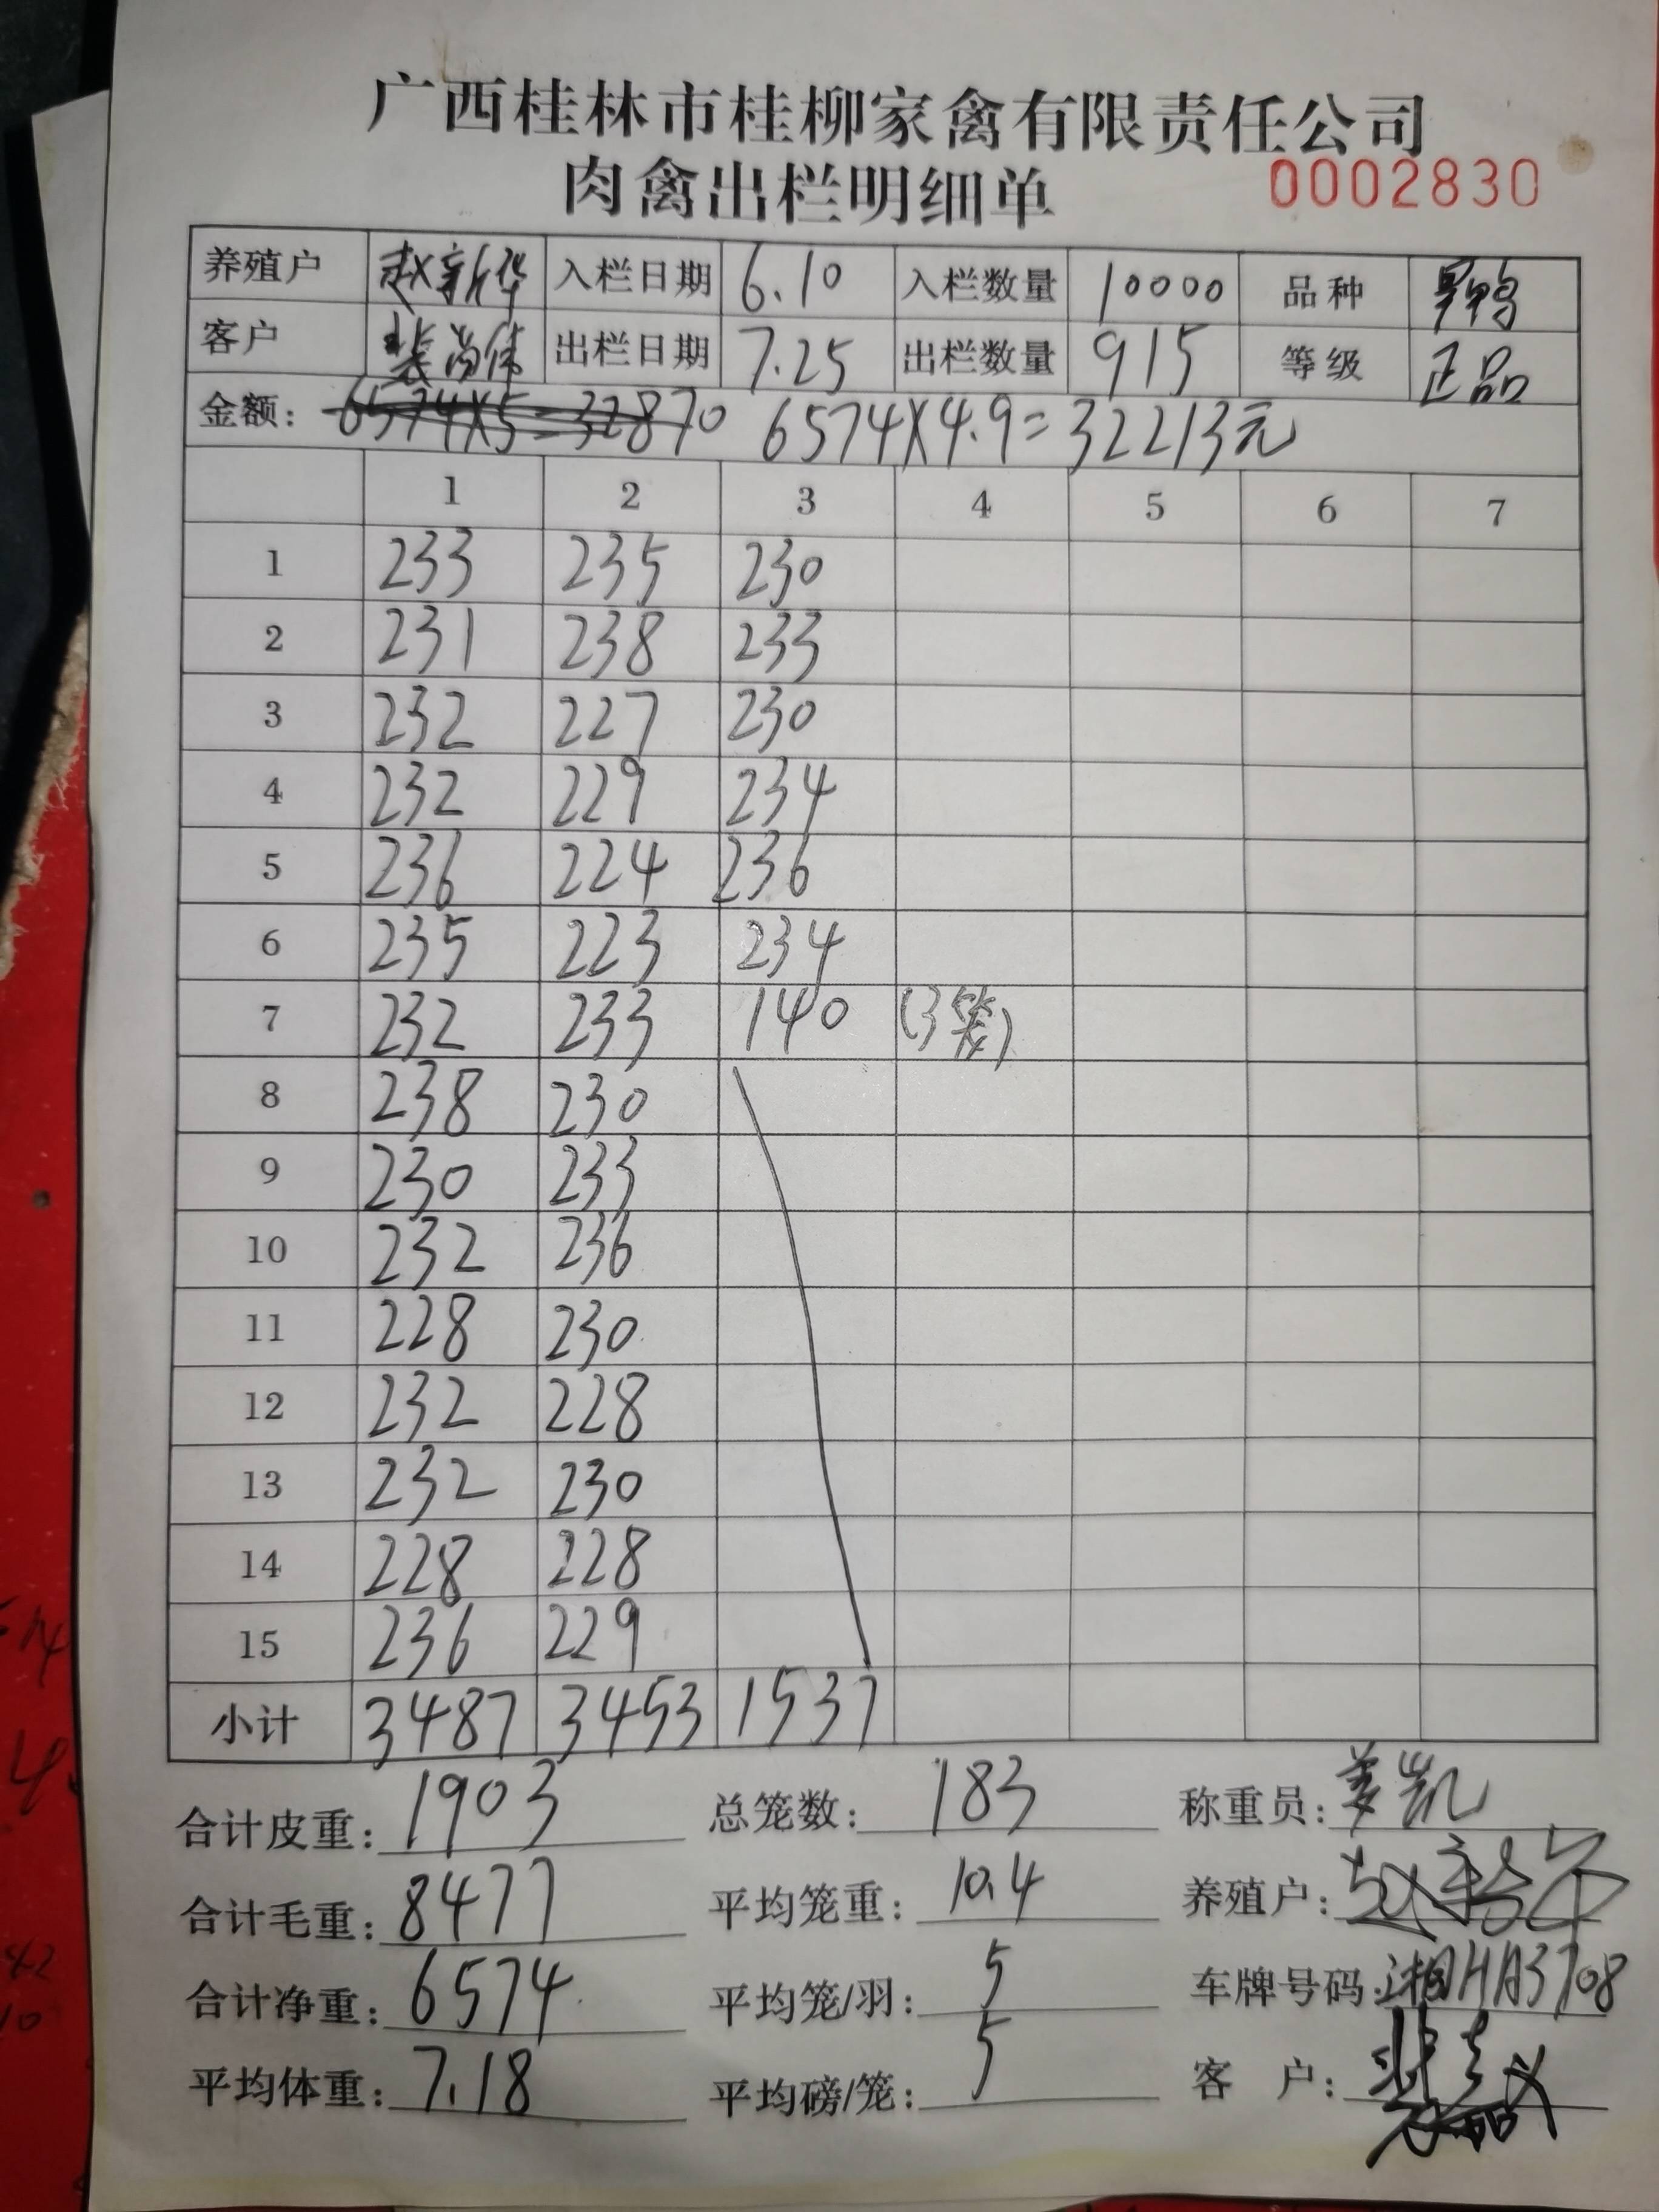 广西桂林市桂柳家禽有限责任公司
肉禽出栏明细单 0002830
养殖户 赵新华 入栏日期 6.10 入栏数量 10000 品种
客户 出栏日期 7.25 出栏数量 915 等级 正品
金额: 6574X5=32870 6574X4.9=32213元
1 2 3 4 5 6 7
1 233 235 230
2 231 238 233
3 232 227 230
4 232 229 234
5 236 224 236
6 235 223 234
7 232 233 140 (3笼)
8 238 230
9 230 233
10 232 236
11 228 230
12 232 228
13 232 230
14 228 228
15 236 229
小计 3487 3453 1537
合计皮重: 1903 总笼数: 183 称重员: 姜凯
合计毛重: 8477 平均笼重: 10.4 养殖户:
合计净重: 6574 平均笼/羽: 5 车牌号码: 湘HA3708
平均体重: 7.18 平均磅/笼: 5 客户: